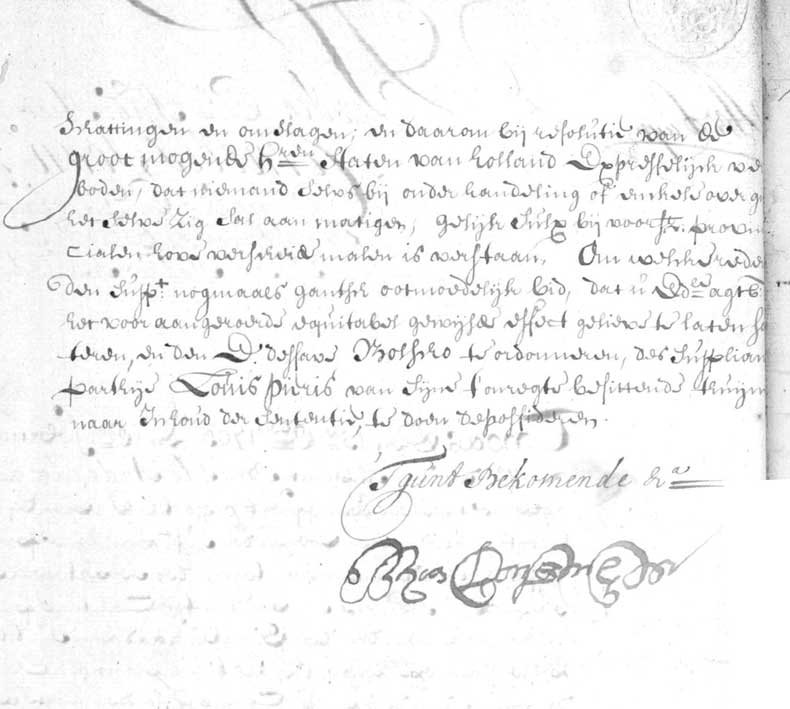 schattingen en omslagen; en daarom bij resolutie van de
groot mogende hren Staten van holland Expresselijck ver
boden, dat niemand selvs bij onder handeling of enkele over g
het selve zig sal aan matigen, gelijk sulx bij voorsz. provin
cialen hove verscheide malen is verstaan, Om welche rede
den suppt nogmaels gantsch ootmoedelijk bid, dat u Edele agtb
het voor aangeroerde equitabel gewijsde effect gelieve te laten
teren, en den D. dessave te ordonneren, des supplian
parthije Louis pieris van sijne t'onregte besittende thuijn
naar Inhoud der sententie, te doen depossideren.
T'gunt Bekomende &a